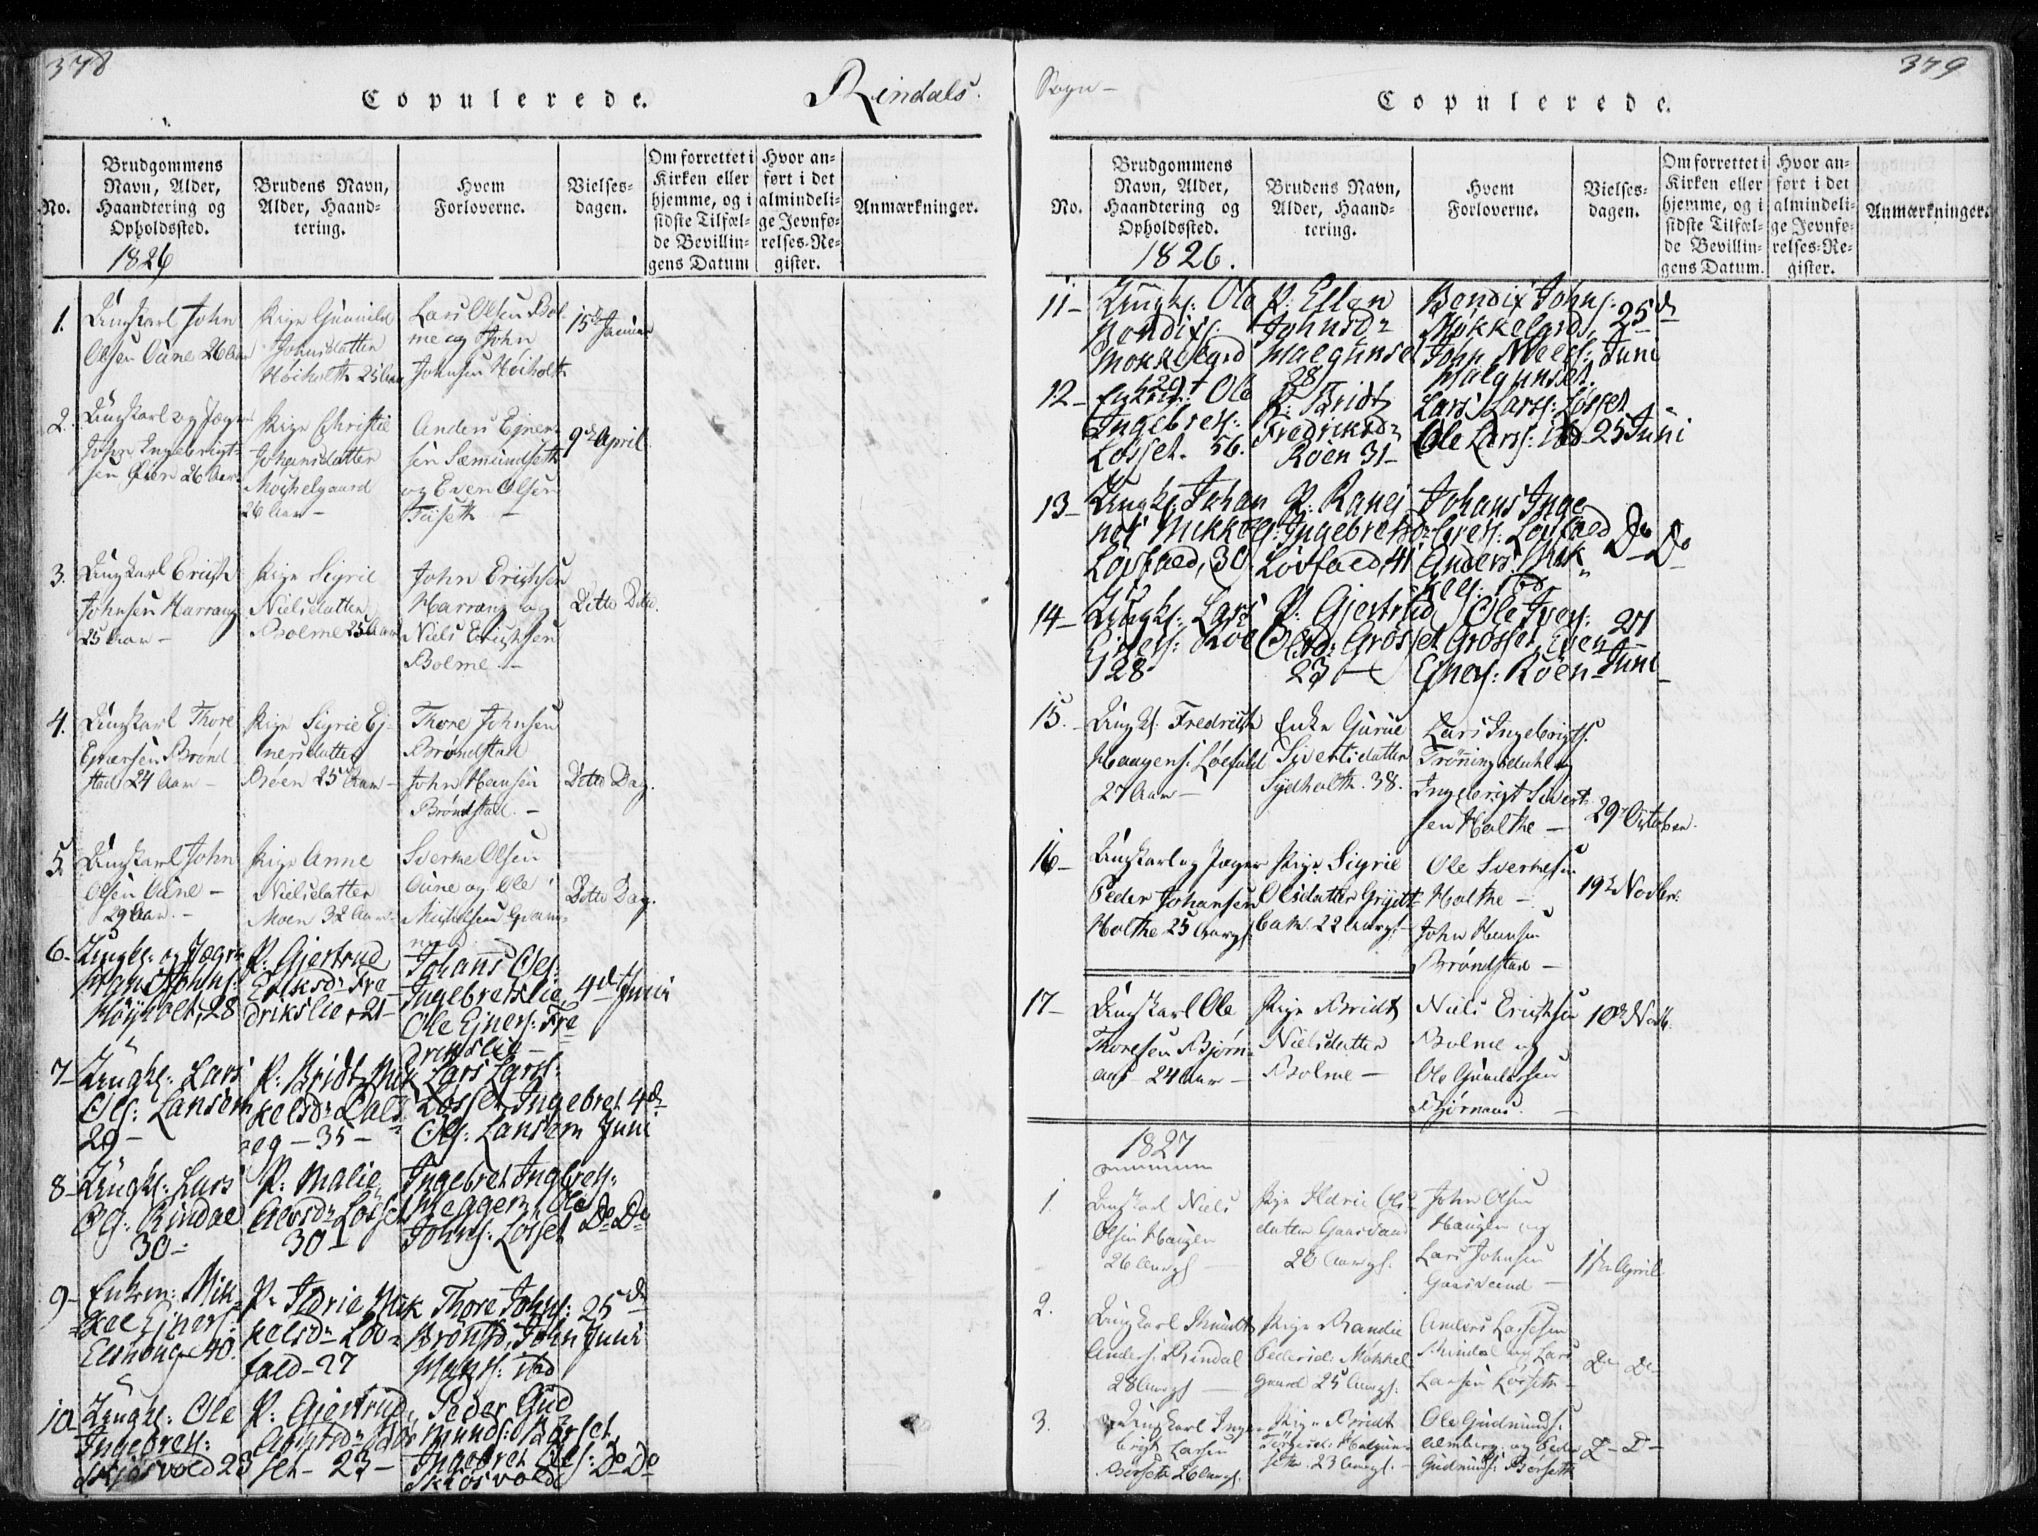 378
Copulerede.
Rindals
No.
Brudgommens Navn, Alder, Haandtering og Opholdssted.
Brudens Navn, Alder, Haandtering.
Hvem Forloverne.
Vielsesdagen.
Om forrettet i Kirken eller hjemme, og i sidste Tilfælde Bevillingens Datum
Hvor anført i det almindelige Jevnførelses-Register.
Anmærkninger.
1826
1.
Ungkarl John
Olsen Aune 26 Aar
Pige Gunnild
Johnsdatter
Høiholth 25 Aar
Lars Olsen Bol
me og John
Johnsen Høiholth
15de Januar
2.
Ungkarl og Jæger
John Ingebrigt
sen 26 Aar
Pige Christie
Johansdatter
Mochelgaard
26 Aar –
Anders Ejner
sen Sæmundseth
og Even Olsen
9de April
3.
Ungkarl Erich
Johnsen Harrang
25 Aar –
Pige Sigrie
Nielsdatter
Bolme 25 Aar
John Erichsen
Harrang og
Niels Erichsen
Bolme –
Ditto Ditto.
4.
Ungkarl Thore
Ejnersen Brønd
stad 24 Aar –
Pige Sigrie Ej
nersdatter
Roen 25 Aar –
Thore Johnsen
Brøndstad
John Hansen
Brøndstad. –
Ditto Dag.
5.
Ungkarl John
Olsen Aune –
29 Aar. –
Pige Anne
Nielsdatter
Moen 32 Aar.
Sverke Olsen
Aune og Ole
Ditto Dag.
6–
Ungks: og Jæger
Hans Johns:
Høyholt, 28
P: Gjertrud
Eriksdr Fre
drikslie, 21–
Johans Ols:
Ingebretslie,
Ole Ejners: Fre
drikslie –
4de Juni
7–
Ungks: Lars
Ols: Lansem
29 –
P: Bridt Mik
kelsdr Dals
eg – 35 –
Lars Larss:
Losset, Ingebret
Ols: Lansem
4de
Juni
8–
Ungks: Lars
Ols: Rindal
30 –
P: Malie
Losset
30 –
Ingebret Ingbrets:
Meggern, Ole
Johns: Losset
Do Do
9–
Enkem: Mik
kel Ejners:
40.
P: Ildrie Mik
kelsdr Løv
fald – 27
Thore Johns:
Brønsd, John
ibd
25de
Juni
10
Ungks: Ole
Ingebrets:
Skiøsvold 23
P: Gjertrud
set – 23 –
Peder Gud
munds: Børset,
Ingebret Ols:
Skiøsvold
Do Do
379
Sogn –
Copulerede.
No.
Brudgommens Navn, Alder, Haandtering og Opholdssted.
Brudens Navn, Alder, Haandtering.
Hvem Forloverne.
Vielsesdagen.
Om forrettet i Kirken eller hjemme, og i sidste Tilfælde Bevillingens Datum.
Hvor anført i det almindelige Jevnførelses-Register.
Anmærkninger.
1826.
11–
Ungks: Ole
Bendixs:
Mokkelgrd
29
P: Ellen
Johnsdr
Halgunset
28
Bendix Johns:
Mokkelgrd,
John Niels:
Halgunset.
25de
Juni
12–
Ole
Ingebrets:
Losset. 56.
P: Bridt
Fredriksdr
Röen 31–
Lars Larss: Losset
Ole Larss: ibd
25 Juni
13–
Ungks: Johan
nes Mikkels:
Løvfald, 30
P: Ranei
Ingebretsdr
Løvfald, 41
Johans Inge
brets: Løvfald
Anders Mik
kels: ibd
Do Do
14–
Ungks: Lars
Ejners: Röe
28
P: Gjertrud
Olsdr Grosset
23 –
Ole Ivers:
Grosset, Even
Ejners: Röen
27
Juni
15.
Ungks. Fredrich
Haagens. Løefald
27 Aar –
Enke Gurue
Sivertsdatter
Sydholth. 38.
Lars Ingebrigts.
Trønningsdahl og
Ingebrigt Sivert
sen Holthe –
29de October.
16–
Ungkarl og Jæger
Peder Johansen
Holthe 25 Aargl.
Pige Sigrie
Olsdatter Grytt
bak. 22 Aargl.
Ole Sverkesen
Holthe –
John Hansen
Brøndstad –
19de Novbr.
17–
Ungkarl Ole
Thoresen Bjørn
aas – 24 Aar –
Pige Bridt
Nielsdatter
Bolme –
Niels Erichsen
Bolme og
Ole Gundersen
Bjørnaas. –
10de Novb.
1827
1.
Ungkarl Niels
Olsen Haugen
26 Aargl –
Pige Ildrie Ols
datter Gaasvand
20 Aargl.
John Olsen
Haugen og
Lars Johnsen
Gaasvand –
1ste April
2.
Ungkarl Knudt
Anders: Rindal
28 Aargl –
Pige Randie
Pedersd: Mokkel
gaard 25 Aargl.
Anders Larsen
Rindal og Lars
Larsen Losseth –
Do Do
3.
Ungkarl Inge
brigt Larsen
Børseth 26 Aargl.
Pige Bridt
Halgun
seth. 23 Aargl. –
Ole Gudmunds.
Almberg. og Peder
Gudmunds: Børseth
D– D–